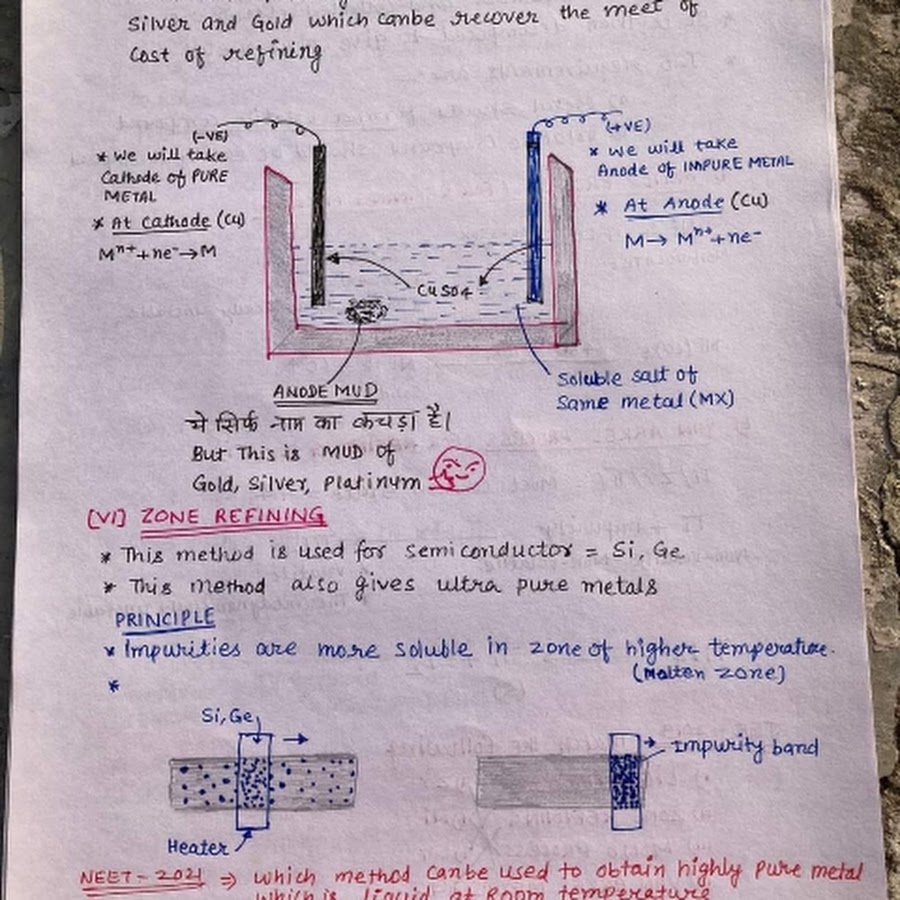 Silver and Gold which canbe recover the meet of
Cost of refining
(-VE)
* We will take
Cathode of PURE
METAL
* At Cathode (Cu)
Mⁿ⁺ + ne⁻ → M
(+VE)
* We will take
Anode of IMPURE METAL
* At Anode (Cu)
M → Mⁿ⁺ + ne⁻
CuSO4
ANODE MUD
Soluble salt of
Same metal (MX)
ये सिर्फ नाम का कचड़ा है।
But This is MUD of
Gold, Silver, Platinum
(VI) ZONE REFINING
* This method is used for semiconductor = Si, Ge
* This method also gives ultra pure metals
PRINCIPLE
* Impurities are more soluble in zone of higher temperature.
(Molten zone)
*
Si, Ge
Heater
Impurity band
NEET-2021 ⇒ which method canbe used to obtain highly pure metal
which is liquid at Room temperature